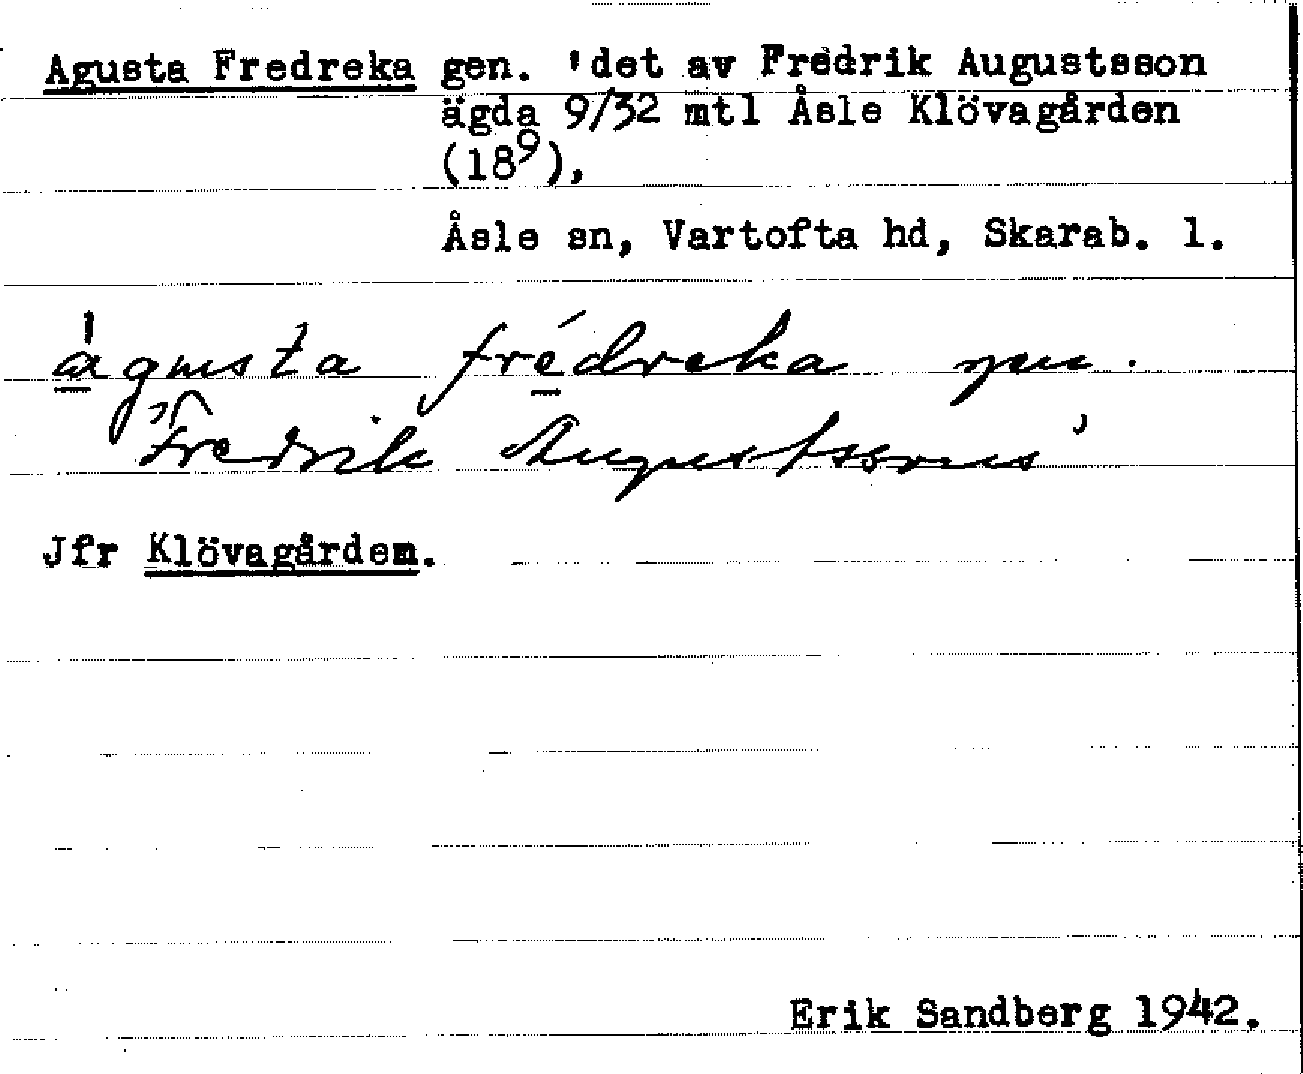 Agusta Fredreka gen. 'det av Fredrik Augustsson
ägda 9/32 mtl Åsle Klövagården
(18⁹),
Åsle sn, Vartofta hd, Skarab. l.
àgusta frédreka gen.
Fredrik Augustssons'
Jfr Klövagården.
Erik Sandberg 1942.